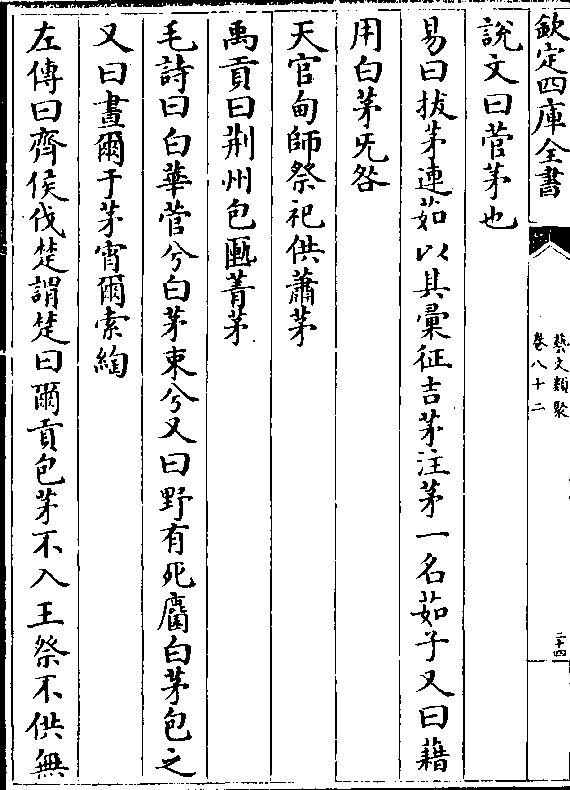 欽定四庫全書
藝文類聚
卷八十二
二十四
說文曰菅茅也
易曰拔茅連茹以其彙征吉茅注茅一名茹子又曰藉
用白茅旡咎
天官甸師祭祀供蕭茅
禹貢曰荆州包匭菁茅
毛詩曰白華菅兮白茅束兮又曰野有死麕白茅包之
又曰晝爾于茅宵爾索綯
左傳曰齊侯伐楚謂楚曰爾貢包茅不入王祭不供無